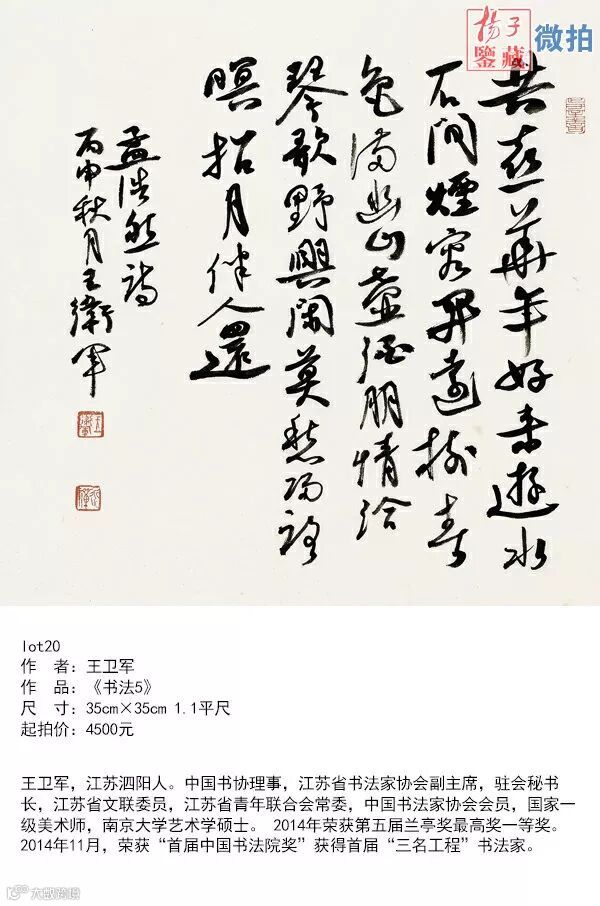 楊子
鑒藏
微拍
共喜華年好来遊水
石间煙容開遠树春
色满幽山壺酒朋情洽
琴歌野興閑莫愁归路
暝招月伴人還
孟浩然诗
丙申秋月王衛軍
lot20
作 者：王卫军
作 品：《书法5》
尺 寸：35cm×35cm 1.1平尺
起拍价：4500元
王卫军，江苏泗阳人。中国书协理事，江苏省书法家协会副主席，驻会秘书
长，江苏省文联委员，江苏省青年联合会常委，中国书法家协会会员，国家一
级美术师，南京大学艺术学硕士。 2014年荣获第五届兰亭奖最高奖一等奖。
2014年11月，荣获“首届中国书法院奖”获得首届“三名工程”书法家。
大数跨境